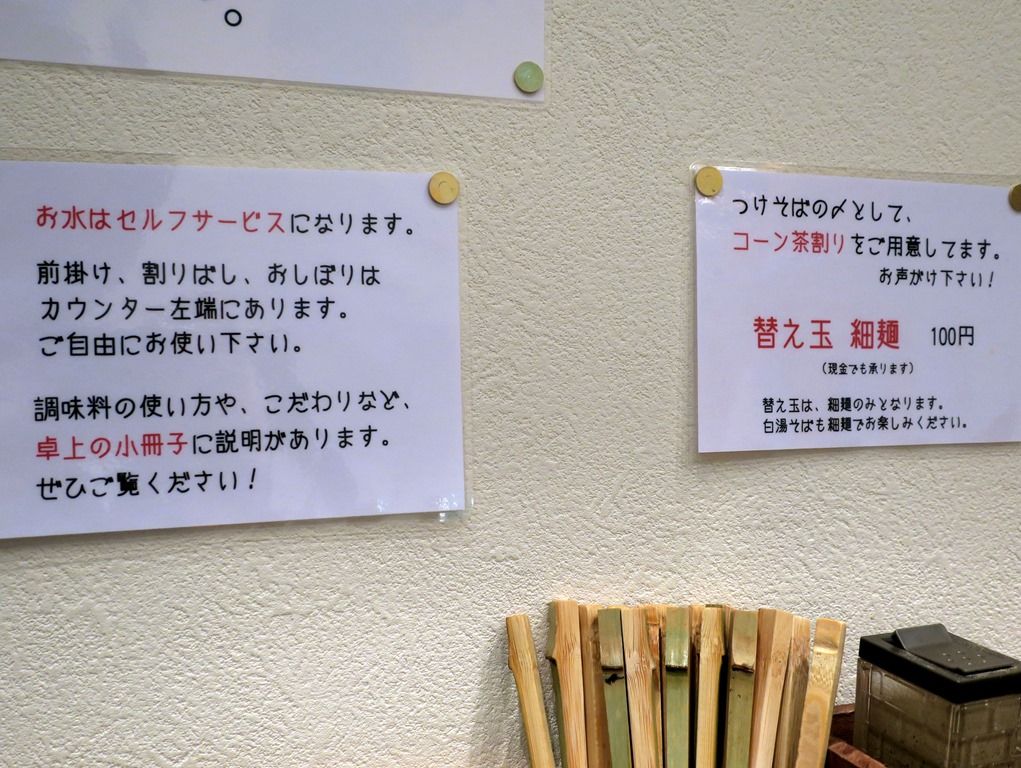 。
お水はセルフサービスになります。
前掛け、割りばし、おしぼりは
カウンター左端にあります。
ご自由にお使い下さい。
調味料の使い方や、こだわりなど、
卓上の小冊子に説明があります。
ぜひご覧ください!
つけそばの〆として、
コーン茶割りをご用意してます。
お声がけ下さい!
替え玉 細麺 100円
(現金でも承ります)
替え玉は、細麺のみとなります。
白湯そばも細麺でお楽しみください。